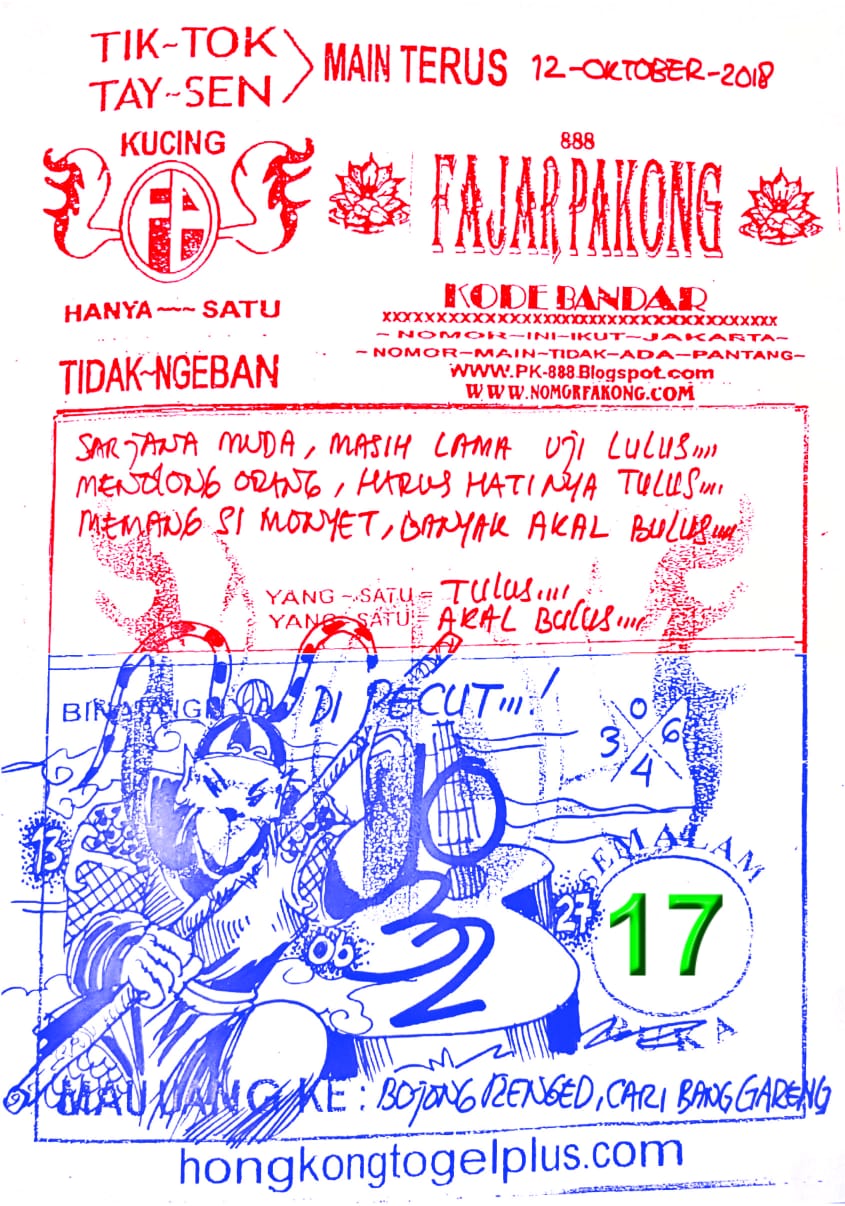 TIK~TOK
TAY~SEN
MAIN TERUS 12-OKTOBER-2018
KUCING
888
FAJAR PAKONG
HANYA~~SATU
KODE BANDAR
xxxxxxxxxxxxxxxxxxxxxxxxxxxxxxxxxxxxxx
~NOMOR~INI~IKUT~JAKARTA~
~NOMOR~MAIN~TIDAK~ADA~PANTANG~
TIDAK~NGEBAN
WWW.PK-888.Blogspot.com
WWW.NOMORPAKONG.COM
SARJANA MUDA, MASIH LAMA UJI LULUS,,,,
MENOLONG ORANG, HARUS HATINYA TULUS,,,,
MEMANG SI MONYET, BANYAK AKAL BULUS,,,,
YANG~SATU= TULUS,,,,
YANG~SATU= AKAL BULUS,,,,
BINATANGNYA DI PECUT,,,!
0
3 6
4
13
SEMALAM
27
17
06
32
MAU UANG KE: BOJONG RENGED, CARI BANG GARENG
hongkongtogelplus.com